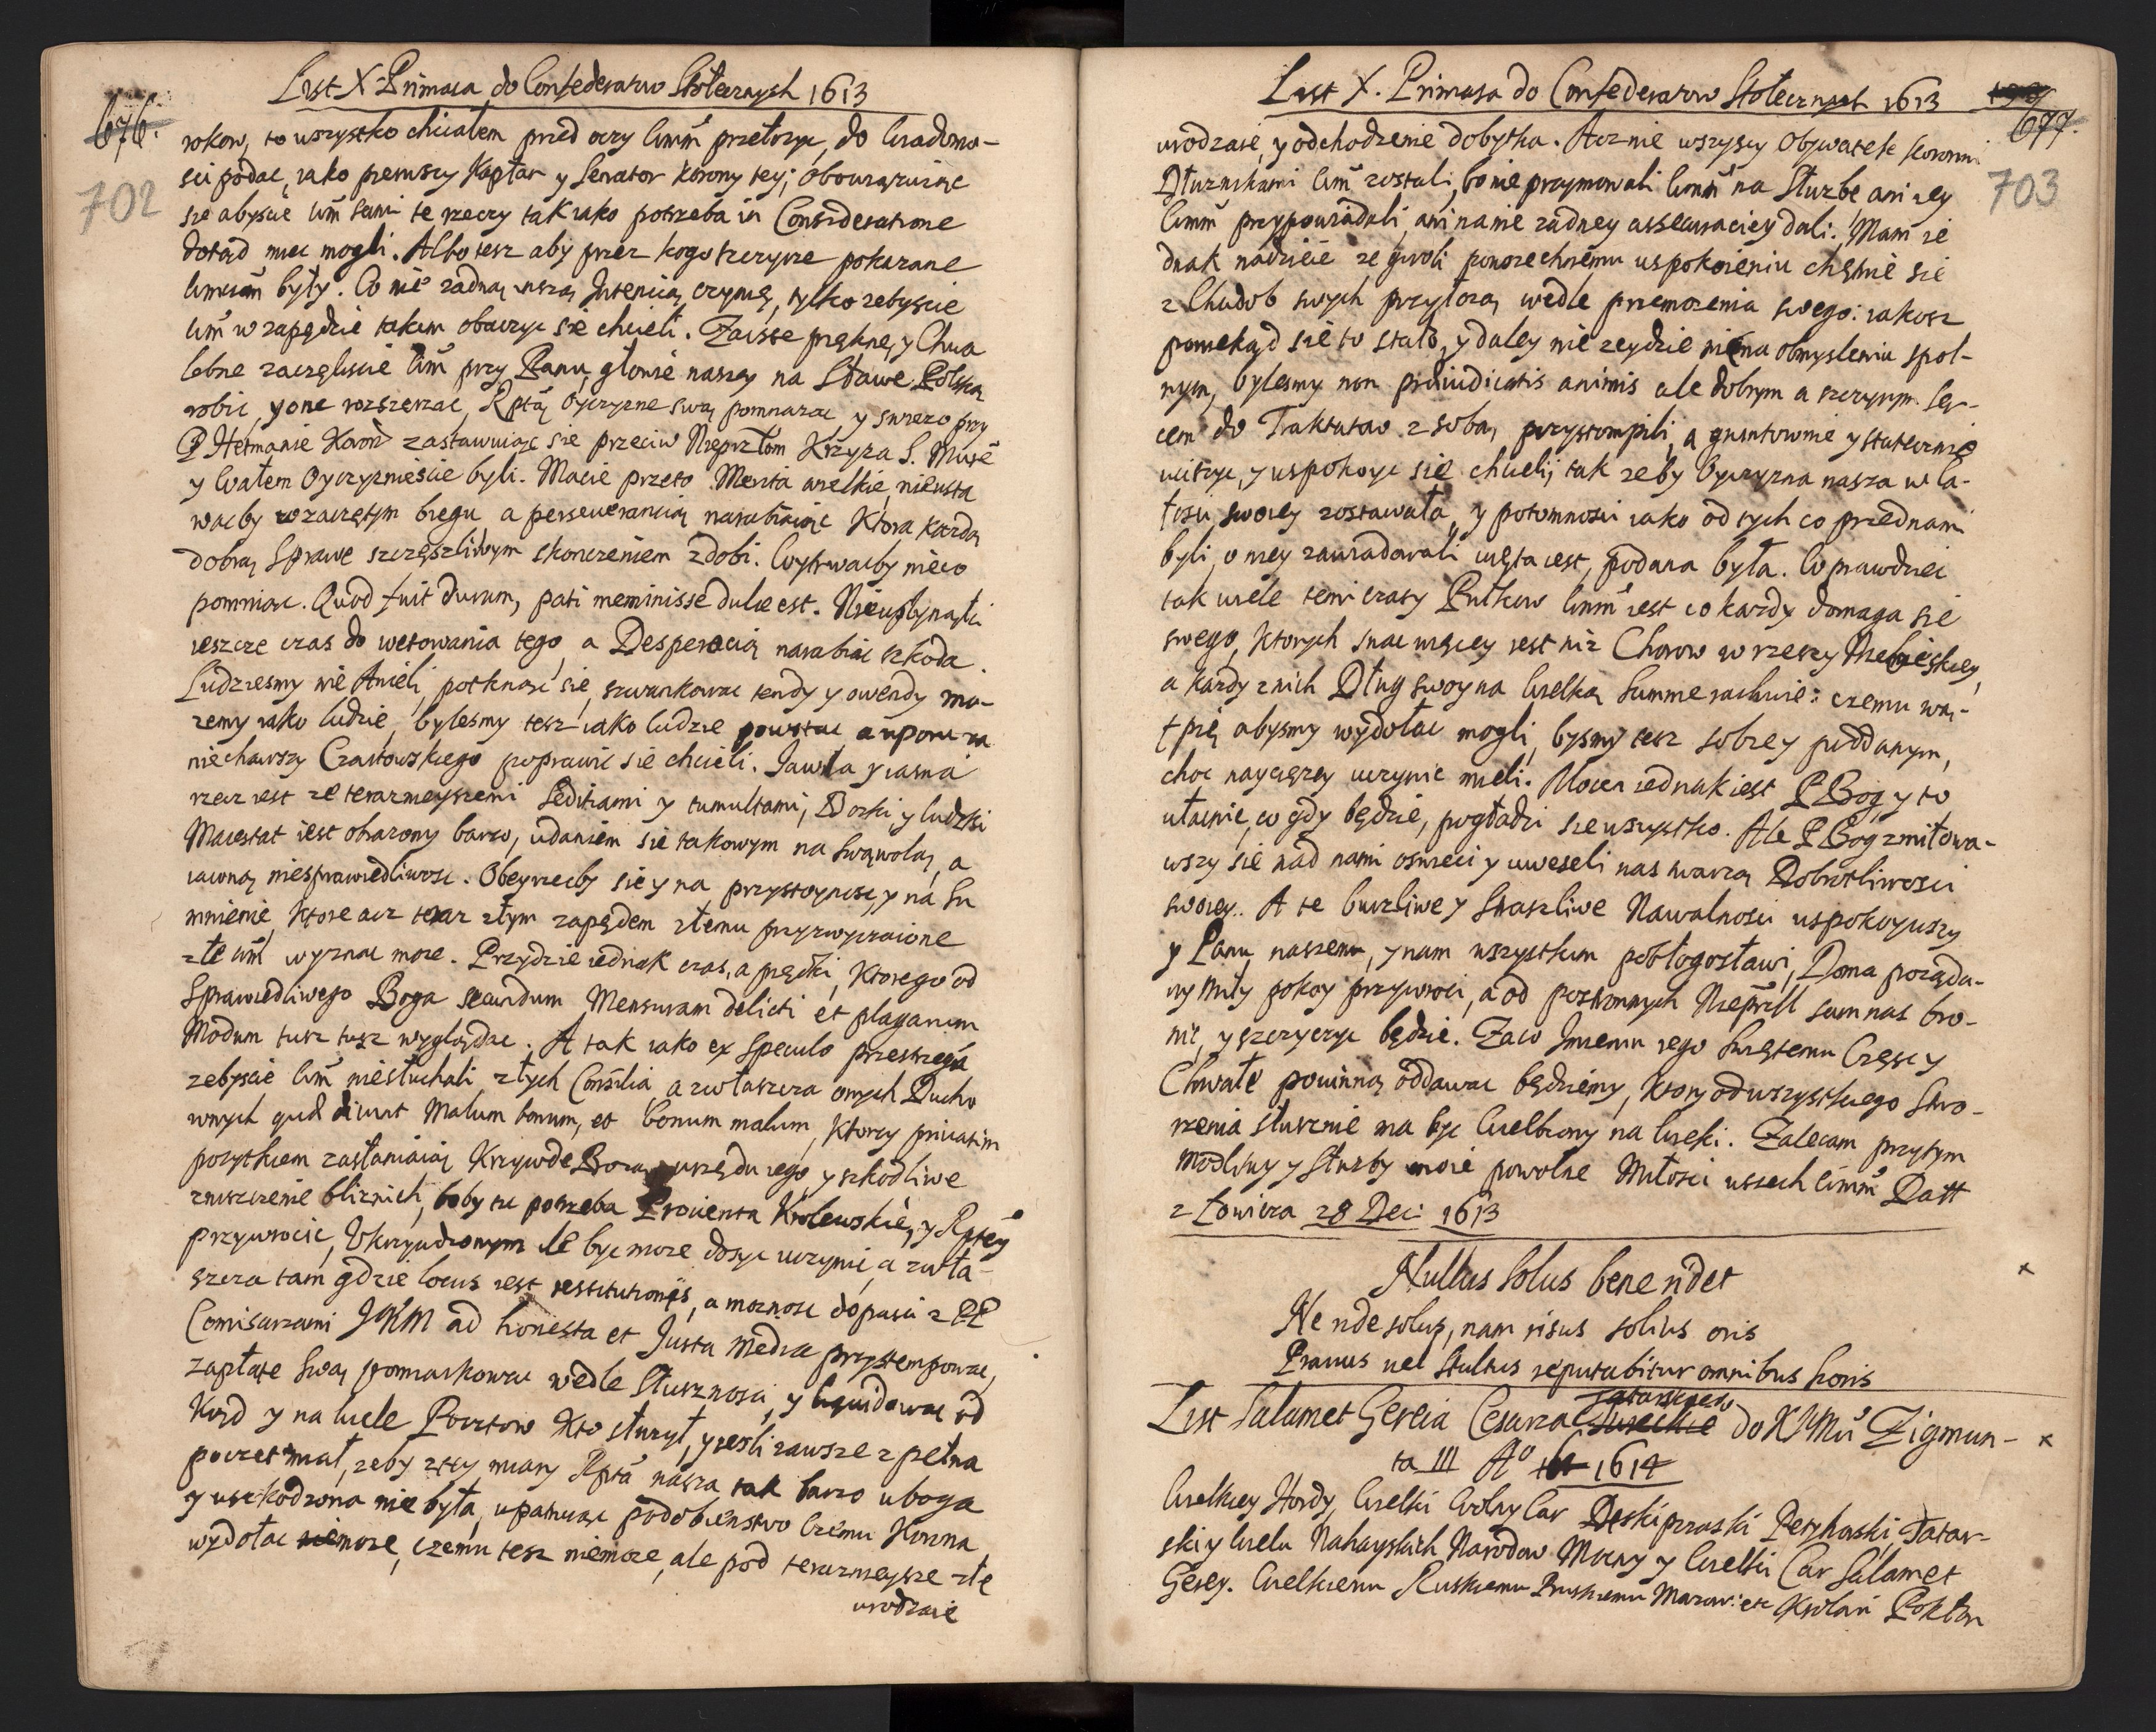 List X Primasa do Confederatow Stołecznych 1613
676.
702
rokow, to wszystko chciałem pred oczy Wmm przełozyc, do Wiadomo-
sci podac, iako pierwszy Kapłan y Senator Korony tey; Obowiązuiąc
sie abyscie Wm sami te rzeczy tak iako potrzeba in Consideratione
dotąd miec mogli. Albo tesz aby przez kogo szczyrze pokazane
Wmciom były. Co nie zadną inszą Intencią czynię, tylko zebyscie
Wm w zapędzie takim obaczyc sie chcieli. Zaisste pięknę, y Chwa
lebne zaczęliscie Wm przy Panu głowie naszey na Sławę Polską
robic, y one rozszerzac, Rptą Oyczyznę swą pomnazac y swiezo przy
P Hetmanie Koron zastawuiąc sie przeciw Nieprzłom Krzyza S. Mure
y Wałem Oyczyzniescie byli. Macie przeto Merita wielkie, nieusta
wacby w zaczętym biegu a perseuerancią narabiaiąc Ktora kazdą
dobrą Sprawę szczęszliwym skonczeniem zdobi. Wytrwacby nieco
pomniąc. Quod fuit durum, pati meminisse dulce est. Nieupłynąłci
ieszcze czas do wetowania tego, a Desperacią narabiac szkoda.
Ludziesmy nie Anieli, potknąc się, szwankowac tendy y owendy mo-
zemy iako ludzie, bylesmy tesz iako ludzie powstac a uporu za
niechawszy Czartowskiego poprawic sie chcieli. Jawna y iasna
rzecz iest ze teraznieyszemi Seditiami y tumultami, Boski y ludzki
Maiestat iest obrazony barzo, udaniem sie takowym na Swąwolą, a
iawną niesprawiedliwosc. Obeyrzecby sie y na przystoynosc, y na Su
mnienie, ktore acz teraz złym zapędem złemu przyzwyczaione
złe Wm wyznac moze. Przydzie iednak czas, a prędki, Ktorego od
Sprawiedliwego Boga secundum Mensuram delicti et plagarum
Modum tusz tusz wyglądac. A tak iako ex Speculo przestrzegą
zebyscie Wm niesłuchali złych Consilia, a zwłaszcza onych Ducho
wnych qui dicunt Malum bonum, et bonum malum, Ktorzy priuatim
pozytkiem zasłaniaią Krzywdę Bozą urzędu iego y szkodliwe
zniszczenie blisnich, boby tu potrzeba Prouenta Krolewskie, y Rptey
przywrocic, Vkrzywdzonym le byc moze dosyc uczynic, a zwła-
szcza tam gdzie locus iest restitutionis, a moznosc dopusci z PP
Comisarzami JKM ad honesta et Justa Media przystempowac,
zapłatę Swą pomiarkowac wedle Słusznosci, y liquidowac od
Kąd y na wiele Pocztow Kto słuzył, y iesli zawsze zpełna
poczet miał, zeby ztey miary Rpta nasza tak barzo uboga
y uszkodzona nie była, upatruiąc podobienstwo Czemu Korona
wydołac moze, czemu tesz niemoze, ale pod teraznieysze złe
urodzaie
List X. Primasa do Confederatow Stołecznych 1613
677.
703
urodzaie, y odchodzenie dobytka. Acz nie wszyscy Obywatele Koronni
Dłuznikami Wm zostali, bo nie przymowali Wmm na Słuzbe ani iey
Wmm przypowiadali, ani na nie zadney assecuraciey dali. Mam ie
dnak nadzieie ze gwoli powszechnemu uspokoieniu chętnie sie
z Chudob swych przyłozą wedle przemozenia swego: iakosz
poniekąd sie to stało, y daley nie zeydzie nięna obmysleniu spol-
nym, bylesmy non praeiudicatis animis ale dobrym a szczyrym Ser-
cem do Traktatow z sobą, przystompili, a gruntownie y statecznie
uciszyc, y uspokoyc się chcieli, tak zeby Oyczyzna nasza w ca-
łosci swoiey zostawała, y potomnosci iako od tych co przednami
byli, o niey zawiadowali wzięta iest, podana była. Co prawdzei
tak wiele temi czasy Pułkow Wmm iest co kazdy domaga sie
swego, Ktorych snac więcey iest niz Chorow w rzeszy Niebieskiey,
a kazdy z nich Dług swoy na wielką Summe rachuie: czemu wą-
tpię abysmy wydołac mogli, bysmy tesz sobie y poddanym,
choc nayciezey uczynic mieli. Mocen iednak iest P Bog y to
ułacnic, co gdy będzie, pogładzi sie wszystko. Ale P Bog zmiłowa-
wszy sie nad nami oswieci y uweseli nas twarzą Dobrotliwosci
swoiey. A te burzliwe y straszliwe Nawalnosci uspokoywszy
y Panu naszemu, y nam wszystkim pobłogosławi, Doma poząda-
ny Miły pokoy przywroci, a od postronnych Nieprzł sam nas bro-
nic, y szczyczyc będzie. Zaco Jmieniu iego Swiętemu Częsc y
Chwałę powinną oddawac będziemy, Ktory od wszystkiego Stwo-
rzenia słusznie ma byc Wielbiony na wieki. Zalecam przytym
Modlitwy y Słuzby moie powolne Miłosci wszech Wmm Datt
z Łowicza 28 Dec: 1613
Nullus Solus bene ridet
Ne ride solus, nam risus solius oris
Prauus uel Stultus reputabitur omnibus horis
List Salamet Gereia Cesarza Tatarskiego do KJMci Zigmun-
ta III A° 1614
Wielkiey Hordy, Wielki Wolny Car Deskiprzaski Petyhorski, Tatar-
ski y wielu Nahayskich Narodow Mocny y Wielki Car Salamet
Gerey. Wielkiemu Ruskiemu Pruskiemu Mazow: etc Krolowi Pokłon